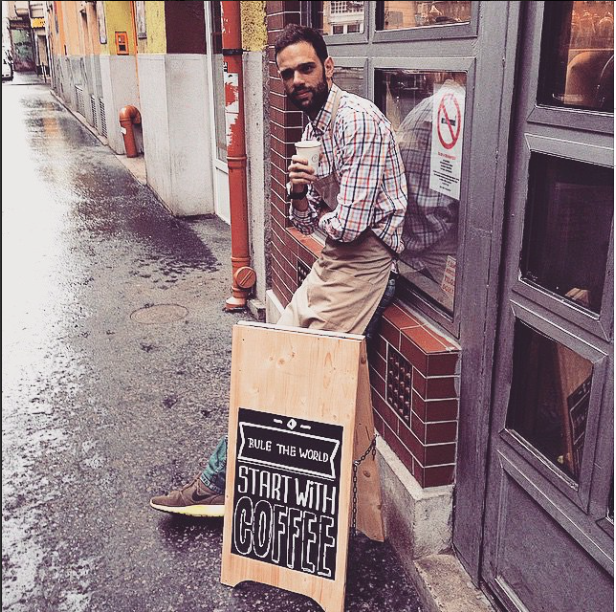 RULE THE WORLD
START WITH
COFFEE